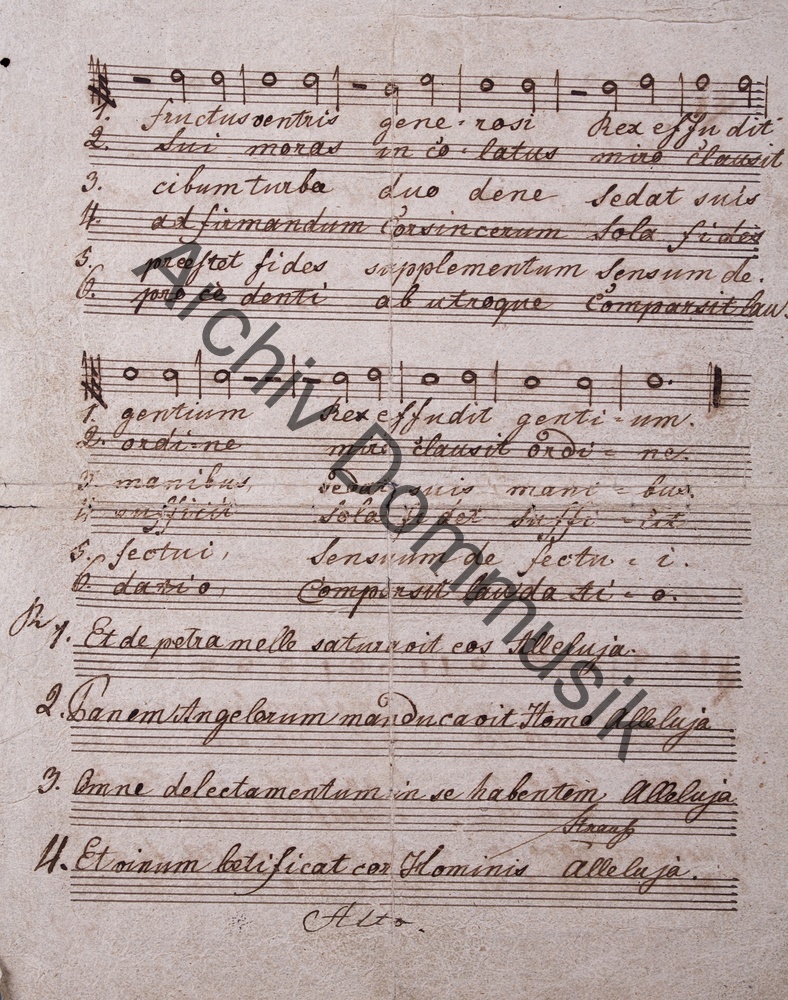 1. fructus ventris gene - rosi Rex effudit
2. Sui moras in co - latus miro clausit
3. cibum turbæ duo denæ Sedat suis
4. ad firmandum Corsincerum Sola fides
5. præstet fides supplementum Sensum de.
6. pro ce denti ab utroque Comparsit lau.
1. gentium Rex effudit genti - um.
2. ordi - ne miro clausit ordi - ne.
3. manibus, Sedat suis mani - bus.
4. sufficit Sola fi des suffi - cit
5. fectui, Sensuum de fectu - i.
6. datio, Comparsit lauda ti - o.
R 1. Et de petra melle saturavit eos Alleluja.
2. Panem Angelorum manducavit Homo Alleluja
3. Omne delectamentum in se habentem Alleluja
Strauß
4. Et vinum lætificat cor Hominis Alleluja.
Alto.
Archiv Dommusik